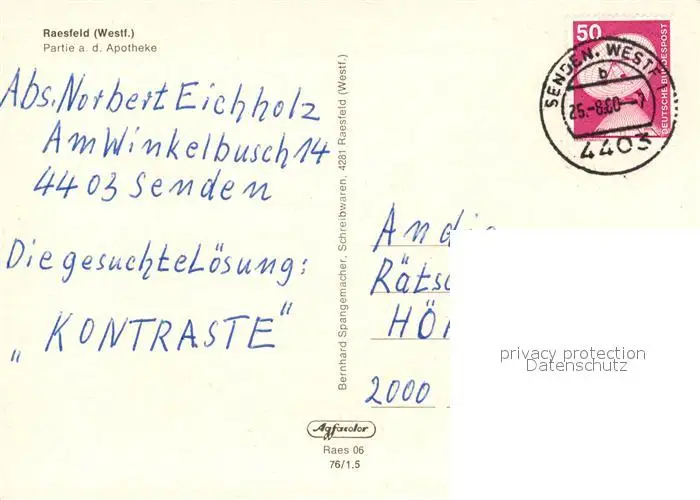 Raesfeld (Westf.)
Partie a. d. Apotheke
Abs. Norbert Eichholz
Am Winkelbusch 14
4403 Senden
Die gesuchte Lösung:
„KONTRASTE"
Bernhard Spangemacher, Schreibwaren, 4281 Raesfeld (Westf.)
Agfacolor
Raes 06
76/1.5
50
DEUTSCHE BUNDESPOST
SENDEN, WESTF
b
25.-8.80.-7
4403
An die
Räts
HÖ
2000
privacy protection
Datenschutz